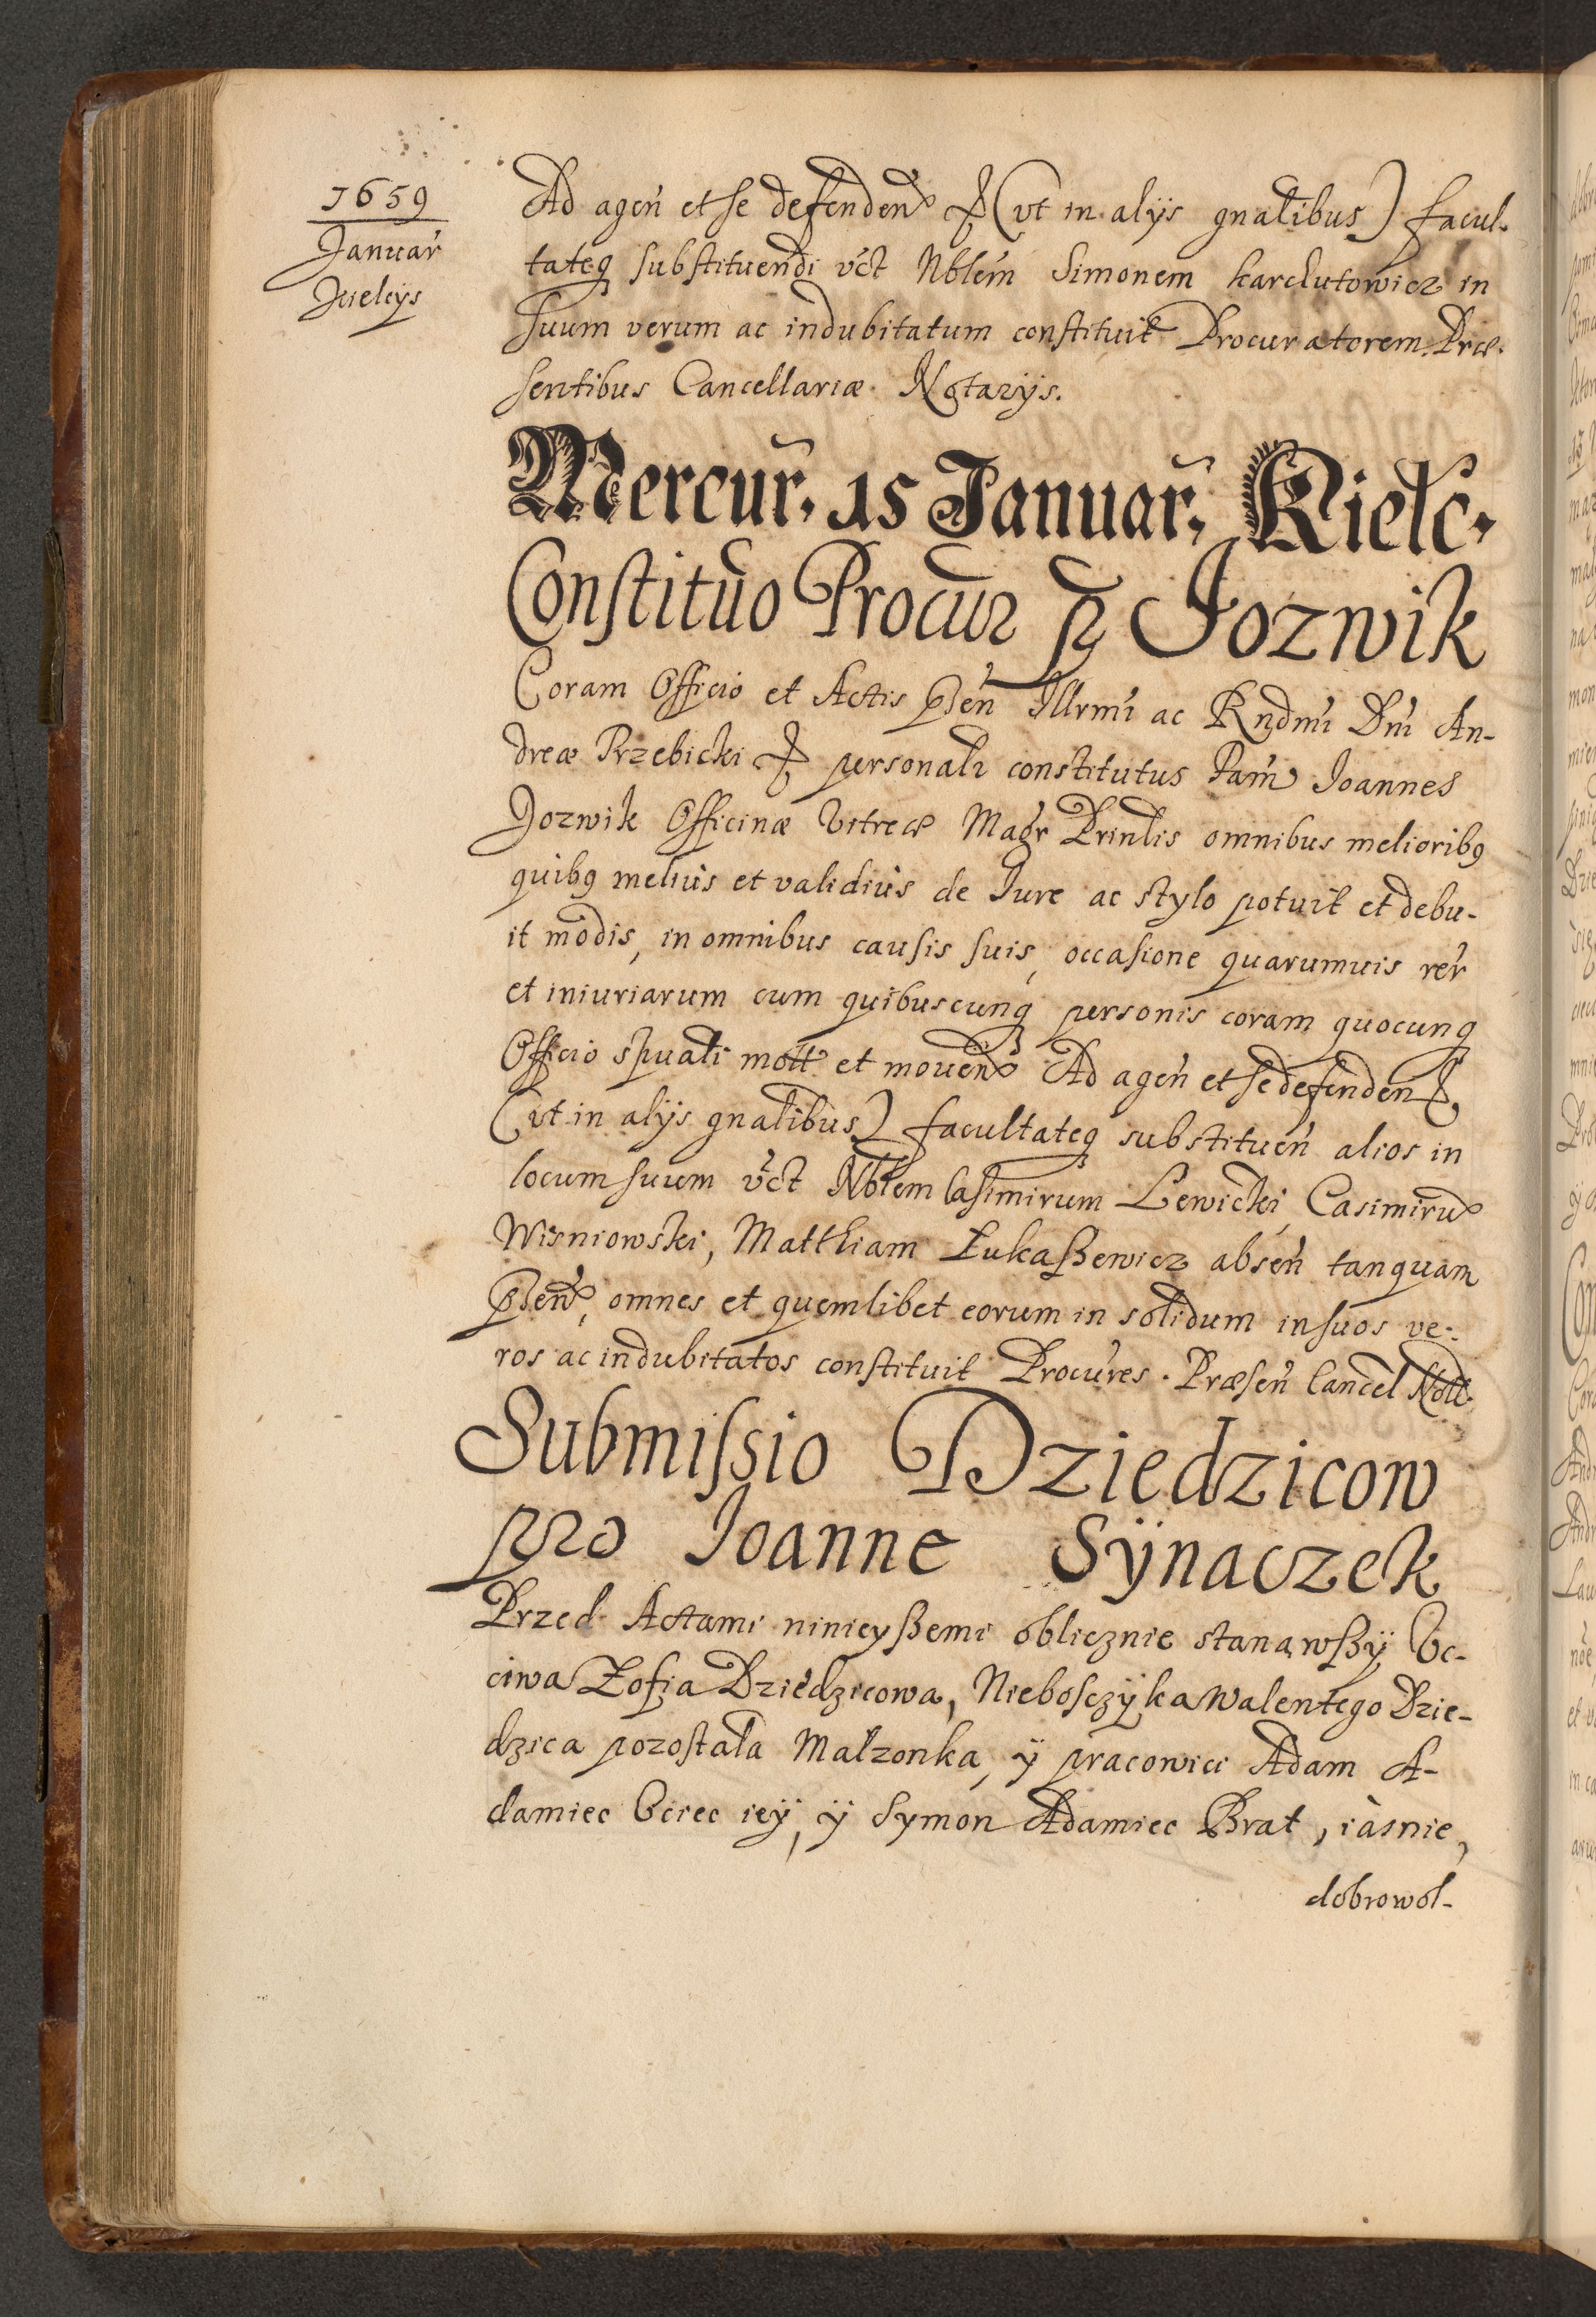 1659
Januar
Kielcijs
Ad agen et se defenden & (ut in alijs gnalibus) facul-
tateq substituendi vct Nblem Simonem karchutowicz in
suum verum ac indubitatum constituit Procuratorem. Præ-
sentibus Cancellariæ Notarijs.
Mercur. 15 Januar. Kielc.
Constituo Procur p Jozwik
Coram Officio et Actis psen Illrmi ac Rndmi Dni An-
dreæ Trzebicki & personalr constitutus Fam Joannes
Jozwik Officinæ Vitreæ Magr Prinlis omnibus melioribq
quibq melius et validius de Jure ac stylo potuit et debu-
it modis, in omnibus causis suis, occasione quarumvis rer
et iniuriarum cum quibuscunq personis coram quocunq
Officio spuali mott et moven Ad agen et se defenden &
(ut in alijs gnalibus) facultateq substituen alios in
locum suum vct Nblem Casimirum Lewicki, Casimiru
Wisniowski, Matthiam Łukaszewicz absen tanquam
psen, omnes et quemlibet eorum in solidum in suos ve-
ros ac indubitatos constituit Procures. Præsen Cancel Nott
Submissio Dziedzicow
pro Joanne Sÿnaczek
Przed Actami ninieyszemi oblicznie stanąwszÿ Vc-
ciwa Zofia Dziedzicowa, Nieboszczÿka Walentego Dzie-
dzica pozostała Małzonka, ÿ pracowici Adam A-
damiec Ociec ieÿ, ÿ Symon Adamiec Brat, iàsnie,
dobrowol-